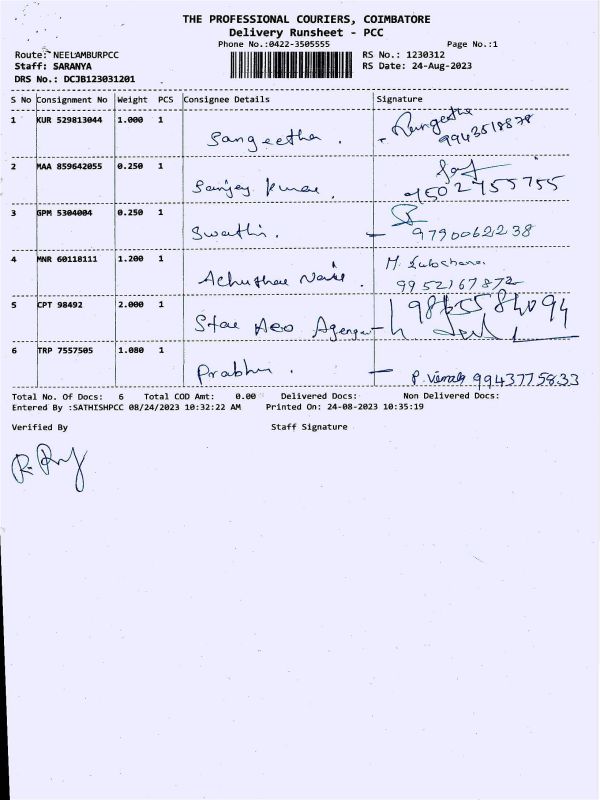 THE PROFESSIONAL COURIERS, COIMBATORE
Delivery Runsheet - PCC
Phone No.:0422-3505555 Page No.:1
Route: NEELAMBURPCC RS No.: 1230312
Staff: SARANYA RS Date: 24-Aug-2023
DRS No.: DCJB123031201
S No Consignment No Weight PCS Consignee Details Signature
1 KUR 529813044 1.000 1 Sangeetha . Sangeetha
9943518878
2 MAA 859642055 0.250 1 Sanjay Kumar .
9502755755
3 GPM 5304004 0.250 1 Swathi.
9790062238
4 MNR 60118111 1.200 1 M. Sulochana.
9952167872
5 CPT 98492 2.000 1 Star Aeo
6 TRP 7557505 1.080 1 Prabhu .
9943775833
Total No. Of Docs: 6 Total COD Amt: 0.00 Delivered Docs: Non Delivered Docs:
Entered By :SATHISHPCC 08/24/2023 10:32:22 AM Printed On: 24-08-2023 10:35:19
Verified By Staff Signature